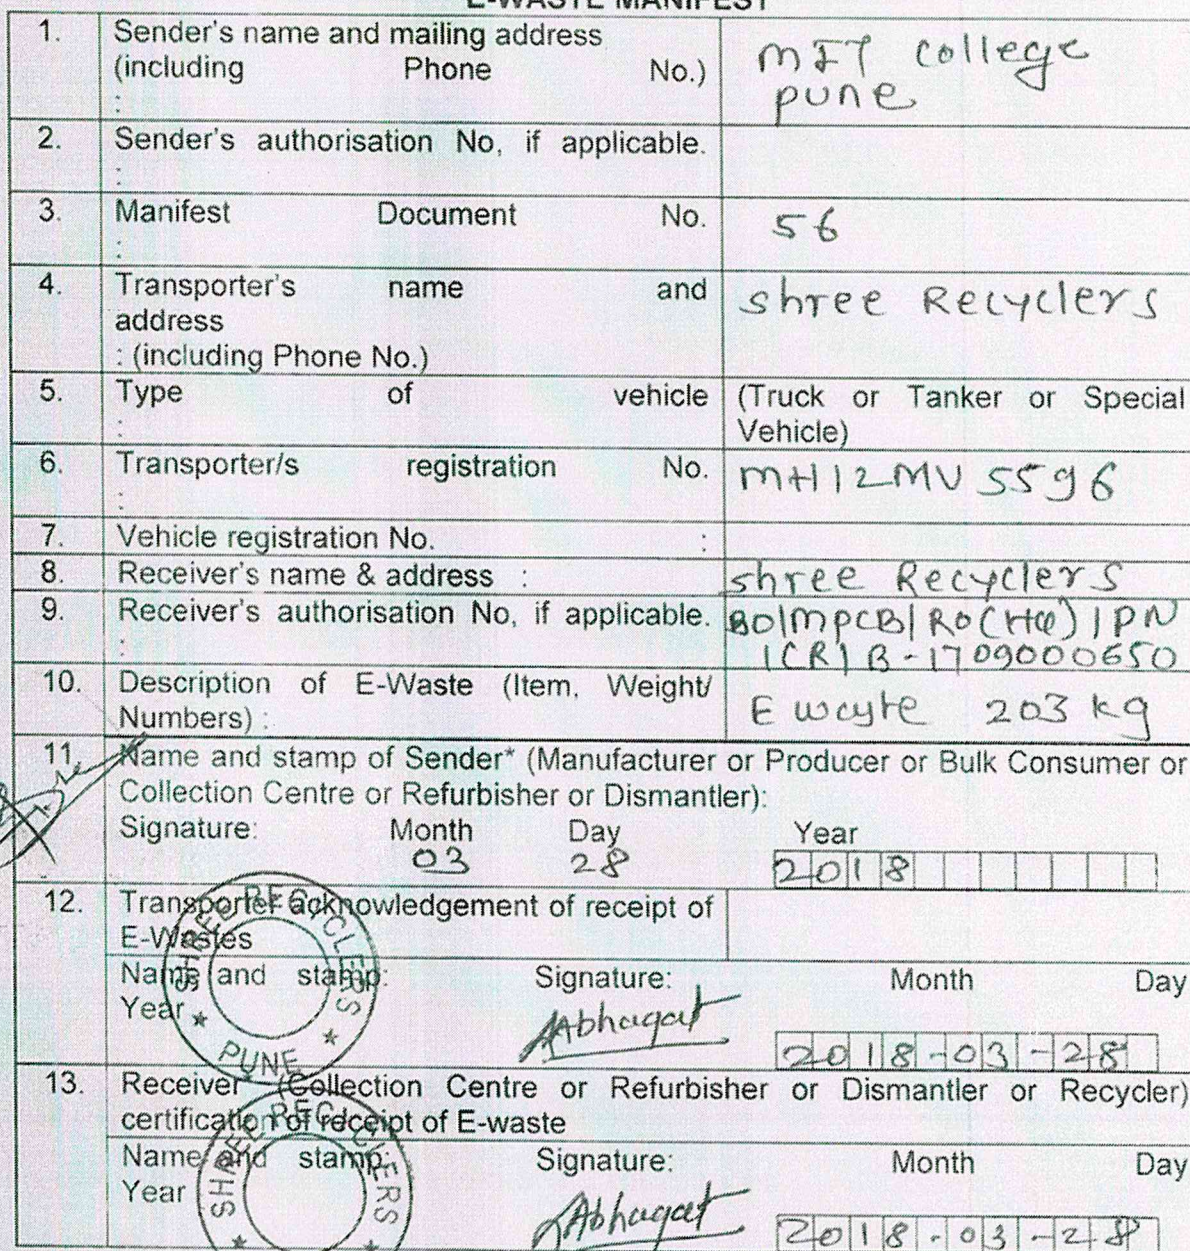 E-WASTE MANIFEST
1. Sender's name and mailing address
(including Phone No.)
:
MIT College
pune
2. Sender's authorisation No, if applicable.
:
3. Manifest Document No.
:
56
4. Transporter's name and
address
: (including Phone No.)
shree Recyclers
5. Type of vehicle
:
(Truck or Tanker or Special
Vehicle)
6. Transporter/s registration No.
:
MH12MV 5596
7. Vehicle registration No. :
8. Receiver's name & address :
shree Recyclers
9. Receiver's authorisation No, if applicable.
:
BO/MPCB/RO(HQ)/PN
/CR/B-1709000650
10. Description of E-Waste (Item, Weight/
Numbers) :
E waste 203 kg
11. Name and stamp of Sender* (Manufacturer or Producer or Bulk Consumer or
Collection Centre or Refurbisher or Dismantler):
Signature: Month Day Year
03 28 2018
12. Transporter acknowledgement of receipt of
E-Wastes
Name and stamp: Signature: Month Day
Year
SHREE RECYCLERS
PUNE
Abhagat
2018-03-28
13. Receiver* (Collection Centre or Refurbisher or Dismantler or Recycler)
certification of receipt of E-waste
Name and stamp: Signature: Month Day
Year
SHREE RECYCLERS
Abhagat
2018-03-28